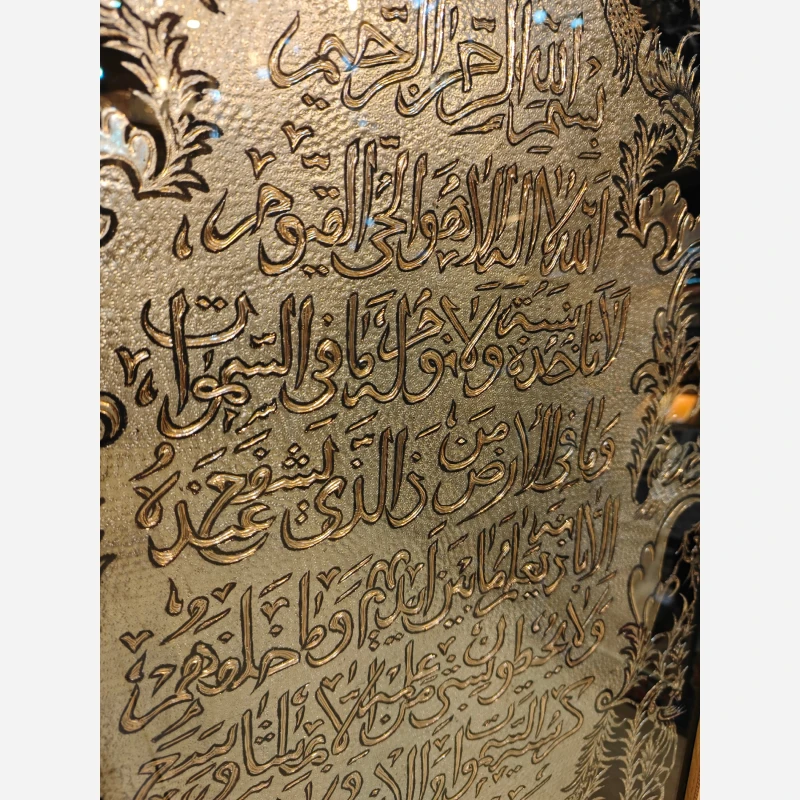 بسم الله الرحمن الرحيم
الله لا اله الا هو الحي القيوم
لا تاخذه سنة ولا نوم له ما في السموات
وما في الارض من ذا الذي يشفع عنده
الا باذنه يعلم ما بين ايديهم وما خلفهم
ولا يحيطون بشئ من علمه الا بما شاء وسع
كرسيه السموات والارض